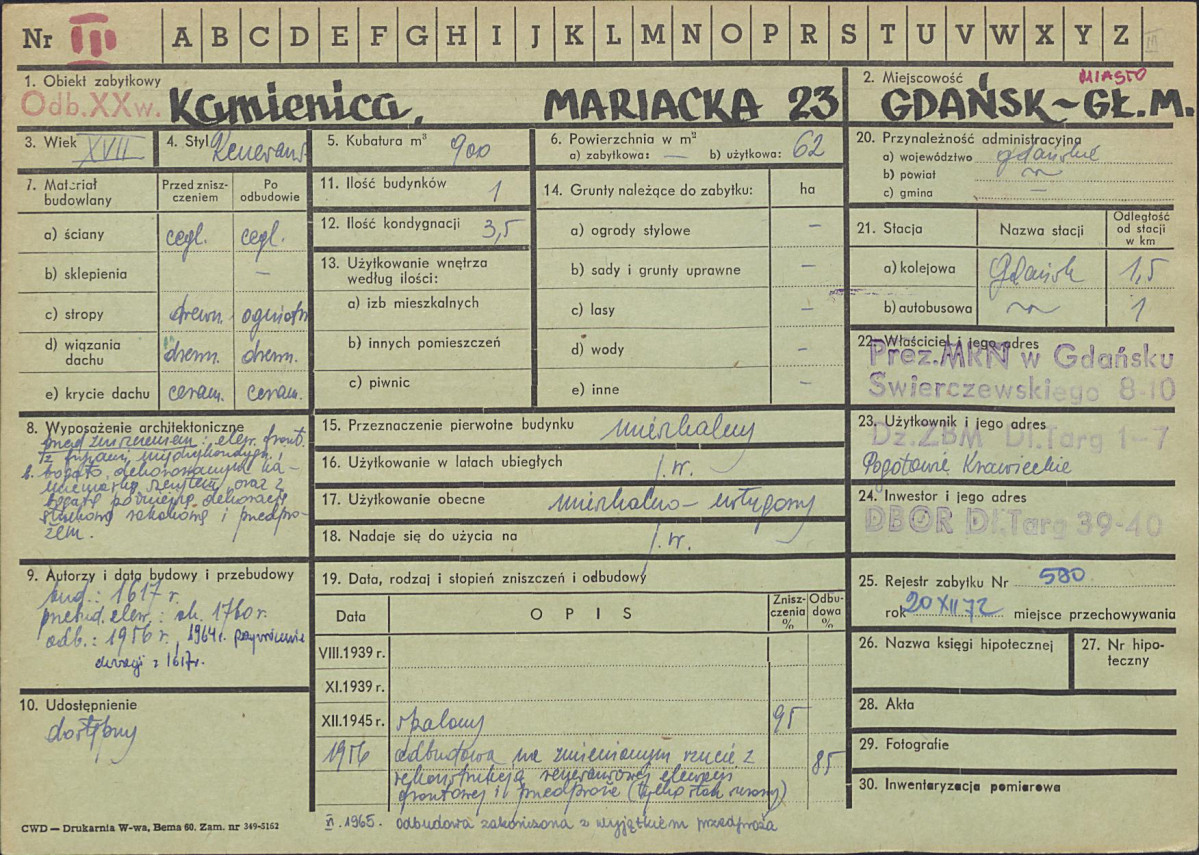 Nr III A B C D E F G H I J K L M N O P R S T U V W X Y Z
1. Obiekt zabytkowy
Odb. XX w. Kamienica, MARIACKA 23
2. Miejscowość MIASTO
GDAŃSK~GŁ.M.
3. Wiek XVII
4. Styl
5. Kubatura m³ 900
6. Powierzchnia w m²
a) zabytkowa: — b) użytkowa: 62
7. Materiał budowlany
Przed zniszczeniem
Po odbudowie
a) ściany cegl. cegl.
b) sklepienia —
c) stropy drewn. ogniotr.
d) wiązania dachu drewn. drewn.
e) krycie dachu ceram. ceram.
8. Wyposażenie architektoniczne
przed zniszczeniem: elew. front.
z fryzami międzykondygn. i
b. bogato dekorowanym ka-
mieniarką szczytem, oraz z
bogatą późniejszą dekoracją
stiukową rokokową i przedpro-
żem.
9. Autorzy i data budowy i przebudowy
bud.: 1617 r.
przebud. elew.: ok. 1760 r.
odb.: 1956 r., 1964 r. przywrócenie
z 1617 r.
10. Udostępnienie
dostępny
11. Ilość budynków 1
12. Ilość kondygnacji 3,5
13. Użytkowanie wnętrza
według ilości:
a) izb mieszkalnych
b) innych pomieszczeń
c) piwnic
14. Grunty należące do zabytku: ha
a) ogrody stylowe —
b) sady i grunty uprawne —
c) lasy —
d) wody —
e) inne —
15. Przeznaczenie pierwotne budynku mieszkalny
16. Użytkowanie w latach ubiegłych j. w.
17. Użytkowanie obecne mieszkalno-usługowy
18. Nadaje się do użycia na j. w.
19. Data, rodzaj i stopień zniszczeń i odbudowy
Data OPIS Zniszczenia % Odbudowa %
VIII.1939 r.
XI.1939 r.
XII.1945 r. spalony 95
1956 odbudowa na zmienionym rzucie z 85
rekonstrukcją renesansowej elewacji
frontowej i przedproże (tylko stan surowy)
1965. odbudowa zakończona z wyjątkiem przedproża
20. Przynależność administracyjna
a) województwo gdańskie
b) powiat
c) gmina —
21. Stacja Nazwa stacji Odległość od stacji w km
a) kolejowa Gdańsk 1,5
b) autobusowa 1
22. Właściciel i jego adres
Prez.MRN w Gdańsku
Świerczewskiego 8-10
23. Użytkownik i jego adres
Dz.ZBM Dł.Targ 1-7
Pogotowie Krawieckie
24. Inwestor i jego adres
DBOR Dł.Targ 39-40
25. Rejestr zabytku Nr 580
rok 20 XII 72 miejsce przechowywania
26. Nazwa księgi hipotecznej
27. Nr hipoteczny
28. Akta
29. Fotografie
30. Inwentaryzacja pomiarowa
CWD — Drukarnia W-wa, Bema 60. Zam. nr 349-5162